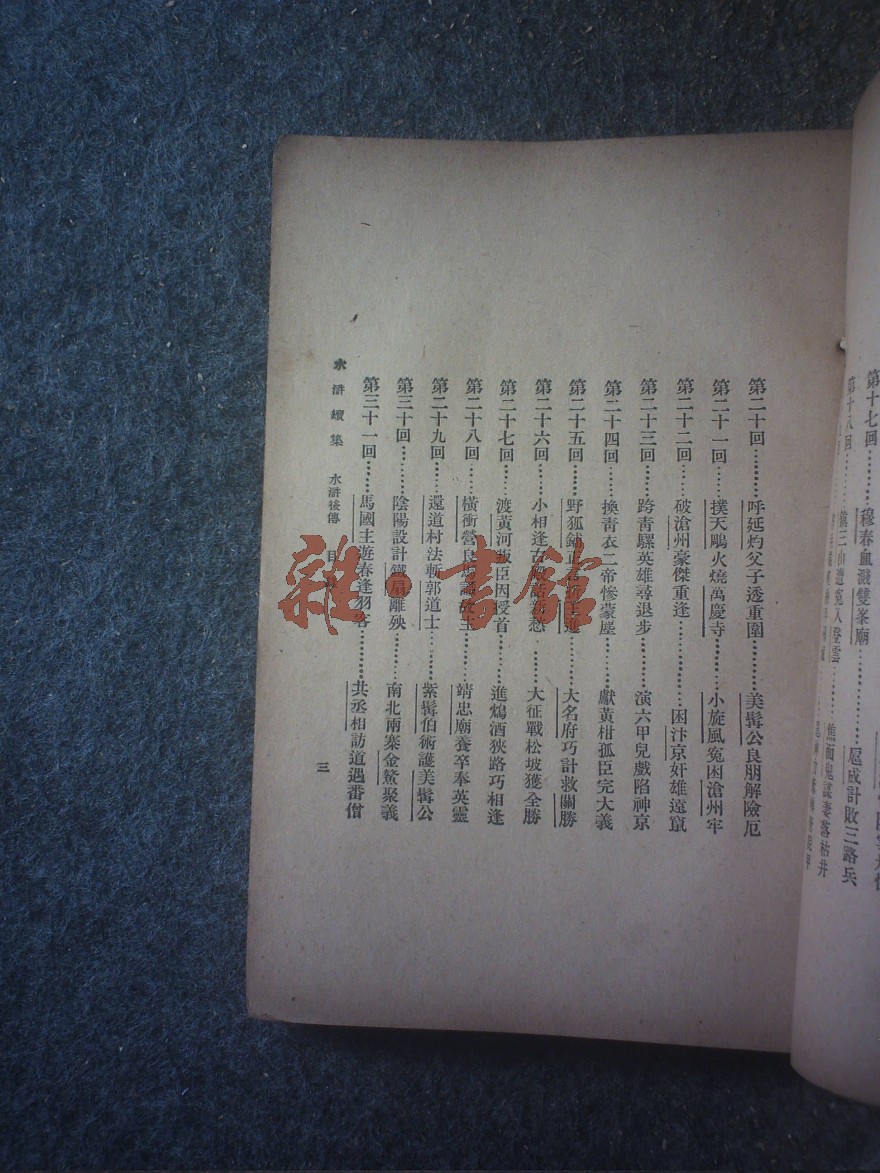 第十七回………穆春血濺雙峯廟…………扈成計敗三路兵
第二十回………呼延灼父子透重圍………美髯公良朋解險厄
第二十一回……撲天鵰火燒萬慶寺………小旋風冤困滄州牢
第二十二回……破滄州豪傑重逢…………困汴京奸雄遠竄
第二十三回……跨青騾英雄尋退步………演六甲兒戲陷神京
第二十四回……換青衣二帝慘蒙塵………獻黃柑孤臣完大義
第二十五回……野狐鋪正 大名府巧計救關勝
第二十六回……小相逢古 愁………大征戰松坡獲全勝
第二十七回……渡黃河叛臣因授首………進鴆酒狹路巧相逢
第二十八回……橫衝營良 主………靖忠廟養卒奉英靈
第二十九回……還道村法斬郭道士………紫髯伯術護美髯公
第三十回………陰陽設計鐵扇離殃………南北兩寨金鰲聚義
第三十一回……馬國主遊春逢羽客………共丞相訪道遇番僧
水滸續集 水滸後傳 目 三
雜·書館